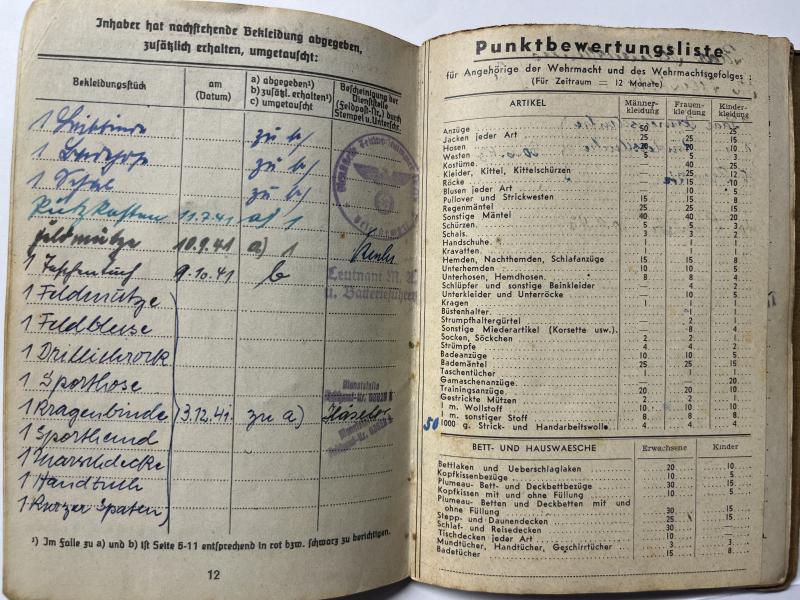 Inhaber hat nachstehende Bekleidung abgegeben,
zusätzlich erhalten, umgetauscht:
Bekleidungsstück
am
(Datum)
a) abgegeben¹)
b) zusätzl. erhalten¹)
c) umgetauscht
Bescheinigung der
Dienststelle
(Feldpost-Nr.) durch
Stempel u. Unterschr.
1 Leibbinde zu b)
1 zu b)
1 Schal zu b)
Putzkasten 11.7.41 a) 1
Feldmütze 10.9.41 a) 1
1 Taschentuch 9.10.41 b
Leutnant
u. Batterieführer
1 Feldmütze
1 Feldbluse
1 Drillichrock
1 Sporthose
1 Kragenbinde 3.12.41. zu a)
Dienststelle
1 Sporthemd
1 Marschdecke
1 Handtuch
1 Kurzer Spaten
¹) Im Falle zu a) und b) ist Seite 6-11 entsprechend in rot bzw. schwarz zu berichtigen.
12
Punktbewertungsliste
für Angehörige der Wehrmacht und des Wehrmachtsgefolges :
(Für Zeitraum = 12 Monate)
ARTIKEL Männerkleidung Frauenkleidung Kinderkleidung
Anzüge 50 — 25
Jacken jeder Art 25 25 15
Hosen 20 20 10
Westen 5 5 3
Kostüme — 40 25
Kleider, Kittel, Kittelschürzen — 25 12
Röcke — 15 10
Blusen jeder Art — 10 5
Pullover und Strickwesten 15 15 8
Regenmäntel 25 25 15
Sonstige Mäntel 40 40 20
Schürzen 5 5 3
Schals 3 3 2
Handschuhe 1 1 1
Kravatten 1 1 1
Hemden, Nachthemden, Schlafanzüge 15 15 8
Unterhemden 10 10 5
Unterhosen, Hemdhosen 8 8 4
Schlüpfer und sonstige Beinkleider — 4 2
Unterkleider und Unterröcke — 10 5
Kragen 1 1 1
Büstenhalter — 1 1
Strumpfhaltergürtel — 2 1
Sonstige Miederartikel (Korsette usw.) — 8 4
Socken, Söckchen 2 2 1
Strümpfe 4 4 2
Badeanzüge 10 10 5
Bademäntel 25 25 15
Taschentücher 1 1 1
Gamaschenanzüge — — 20
Trainingsanzüge 20 20 10
Gestrickte Mützen 2 2 1
1 m. Wollstoff 10 10 10
1 m. sonstiger Stoff 8 8 8
50 1000 g. Strick- und Handarbeitswolle 4 4 4
BETT- UND HAUSWAESCHE Erwachsene Kinder
Bettlaken und Ueberschlaglaken 20 10
Kopfkissenbezüge 10 5
Plumeau- Bett- und Deckbettbezüge 30 15
Kopfkissen mit und ohne Füllung 10 5
Plumeau- Betten und Deckbetten mit und
ohne Füllung 30 15
Stepp- und Daunendecken 25 15
Schlaf- und Reisedecken 30 —
Tischdecken jeder Art 10 —
Mundtücher, Handtücher, Geschirrtücher 3 3
Badetücher 15 8